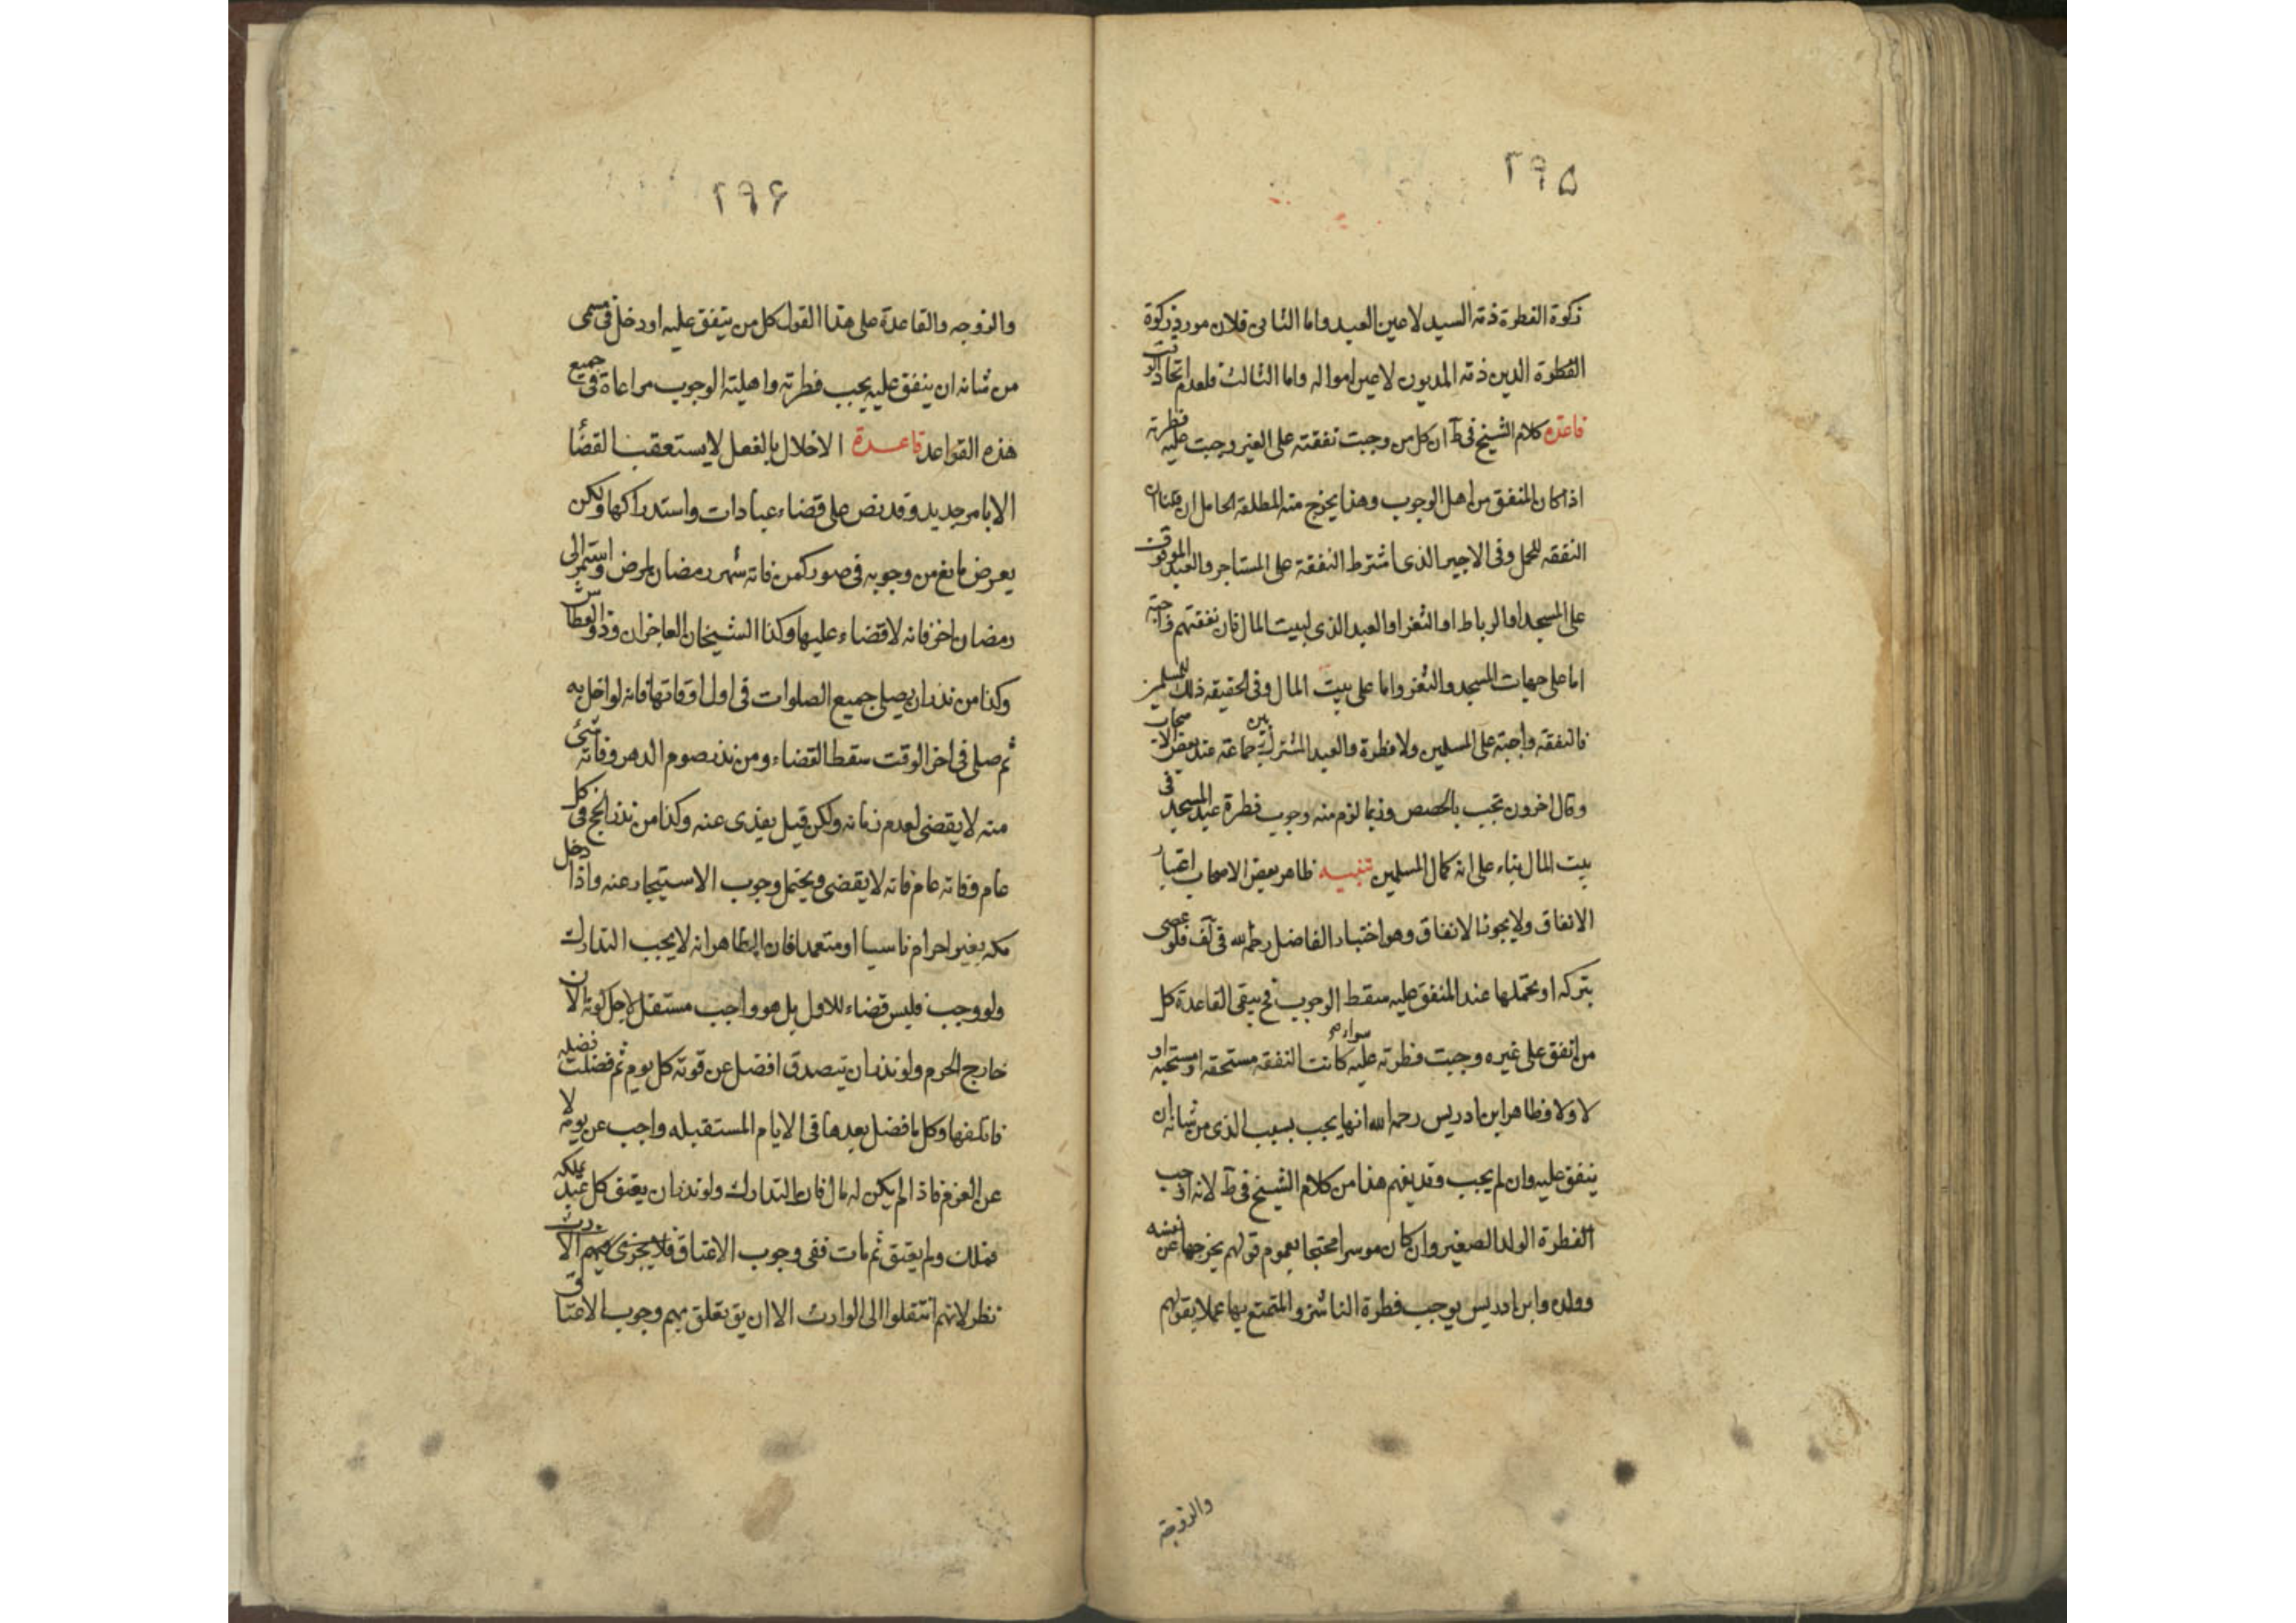 ۲۹۵
زكوة الفطرة ذمة السيد لا عين العبد واما الثاني فلان مورد زكوة
الفطرة الدين ذمة المديون لا عين امواله واما الثالث فلعدم اتحاد الوقت
قاعدة كلام الشيخ في ط ان كل من وجبت نفقته على الغير وجبت عليه فطرته
اذا كان المنفق من اهل الوجوب وهذا يخرج منه المطلقة الحامل ان قلنا ان
النفقه للحمل وفى الاجير الذى اشترط النفقة على المستاجر والعبد الموقوف
على المسجد او الرباط او الثغر او العبد الذى لبيت المال فان نفقتهم واجبة
اما على جهات المسجد والثغر واما على بيت المال وفى الحقيقه ذلك للمسلمين
فالنفقة واجبة على المسلمين ولا فطرة والعبد المشترك بين جماعة عند بعض الاصحاب
وقال اخرون تجب بالحصص وربما لزم منه وجوب فطرة عبد المسجد فى
بيت المال بناء على انه كمال المسلمين تنبيه ظاهر بعض الاصحاب اعتبار
الانفاق ولا يجوز الانفاق وهو اختيار الفاضل رحمه الله فى لف فلو عصى
بتركه او تحملها عند المنفق عليه سقط الوجوب فح يبقى القاعدة كل
من انفق على غيره وجبت فطرته عليه سواء كانت النفقه مستحقه او مستحبه او
لا ولا فظاهر ابن ادريس رحمه الله انها يجب بسبب الذى من شانه ان
ينفق عليه وان لم يجب وقد يفهم هذا من كلام الشيخ فى ط لانه اوجب
الفطرة الولد الصغير وان كان موسرا محتجا بعموم قولهم يخرجها عن نفسه
وولده وابن ادريس يوجب فطرة الناشز والمتمتع بها عملا بقولهم
والزوجة
۲۹۶
والزوجه والقاعدة على هذا القول كل من ينفق عليه او دخل فى مسمى
من شانه ان ينفق عليه يجب فطرته واهلية الوجوب مراعاة فى جميع
هذه القواعد قاعدة الاخلال بالفعل لا يستعقب القضا
الا بامر جديد وقد نص على قضاء عبادات واستدراكها ولكن
يعرض مانع من وجوبه فى صور كمن فاته شهر رمضان لمرض واستمر الى
رمضان اخر فانه لا قضاء عليها وكذا الشيخان العاجزان وذو العطاش
وكذا من نذر ان يصلى جميع الصلوات فى اول اوقاتها فانه لو اخل به
ثم صلى فى اخر الوقت سقط القضاء ومن نذر صوم الدهر وفاته شئ
منه لا يقضى لعدم زمانه ولكن قيل يفدى عنه وكذا من نذر الحج فى كل
عام وفاته عام فانه لا يقضى ويحتمل وجوب الاستيجار عنه واذا دخل
مكه بغير احرام ناسيا او متعمدا فان الظاهر انه لا يجب التدارك
ولو وجب فليس قضاء للاول بل هو واجب مستقل لاجل كونه الان
خارج الحرم ولو نذر ان يتصدق افضل عن قوته كل يوم ثم فضلت فضله
فاتلفها وكل ما فضل بعدها فى الايام المستقبله واجب عن يومه لا
عن الغرم فاذا لم يكن له مال فان التدارك ولو نذر ان يعتق كل عبد يملكه
فملك ولم يعتق ثم مات ففى وجوب الاعتاق فلا يجزى فيهم الارث
نظر لانهم انتقلوا الى الوارث الا ان يق تعلق بهم وجوب الاعتاق